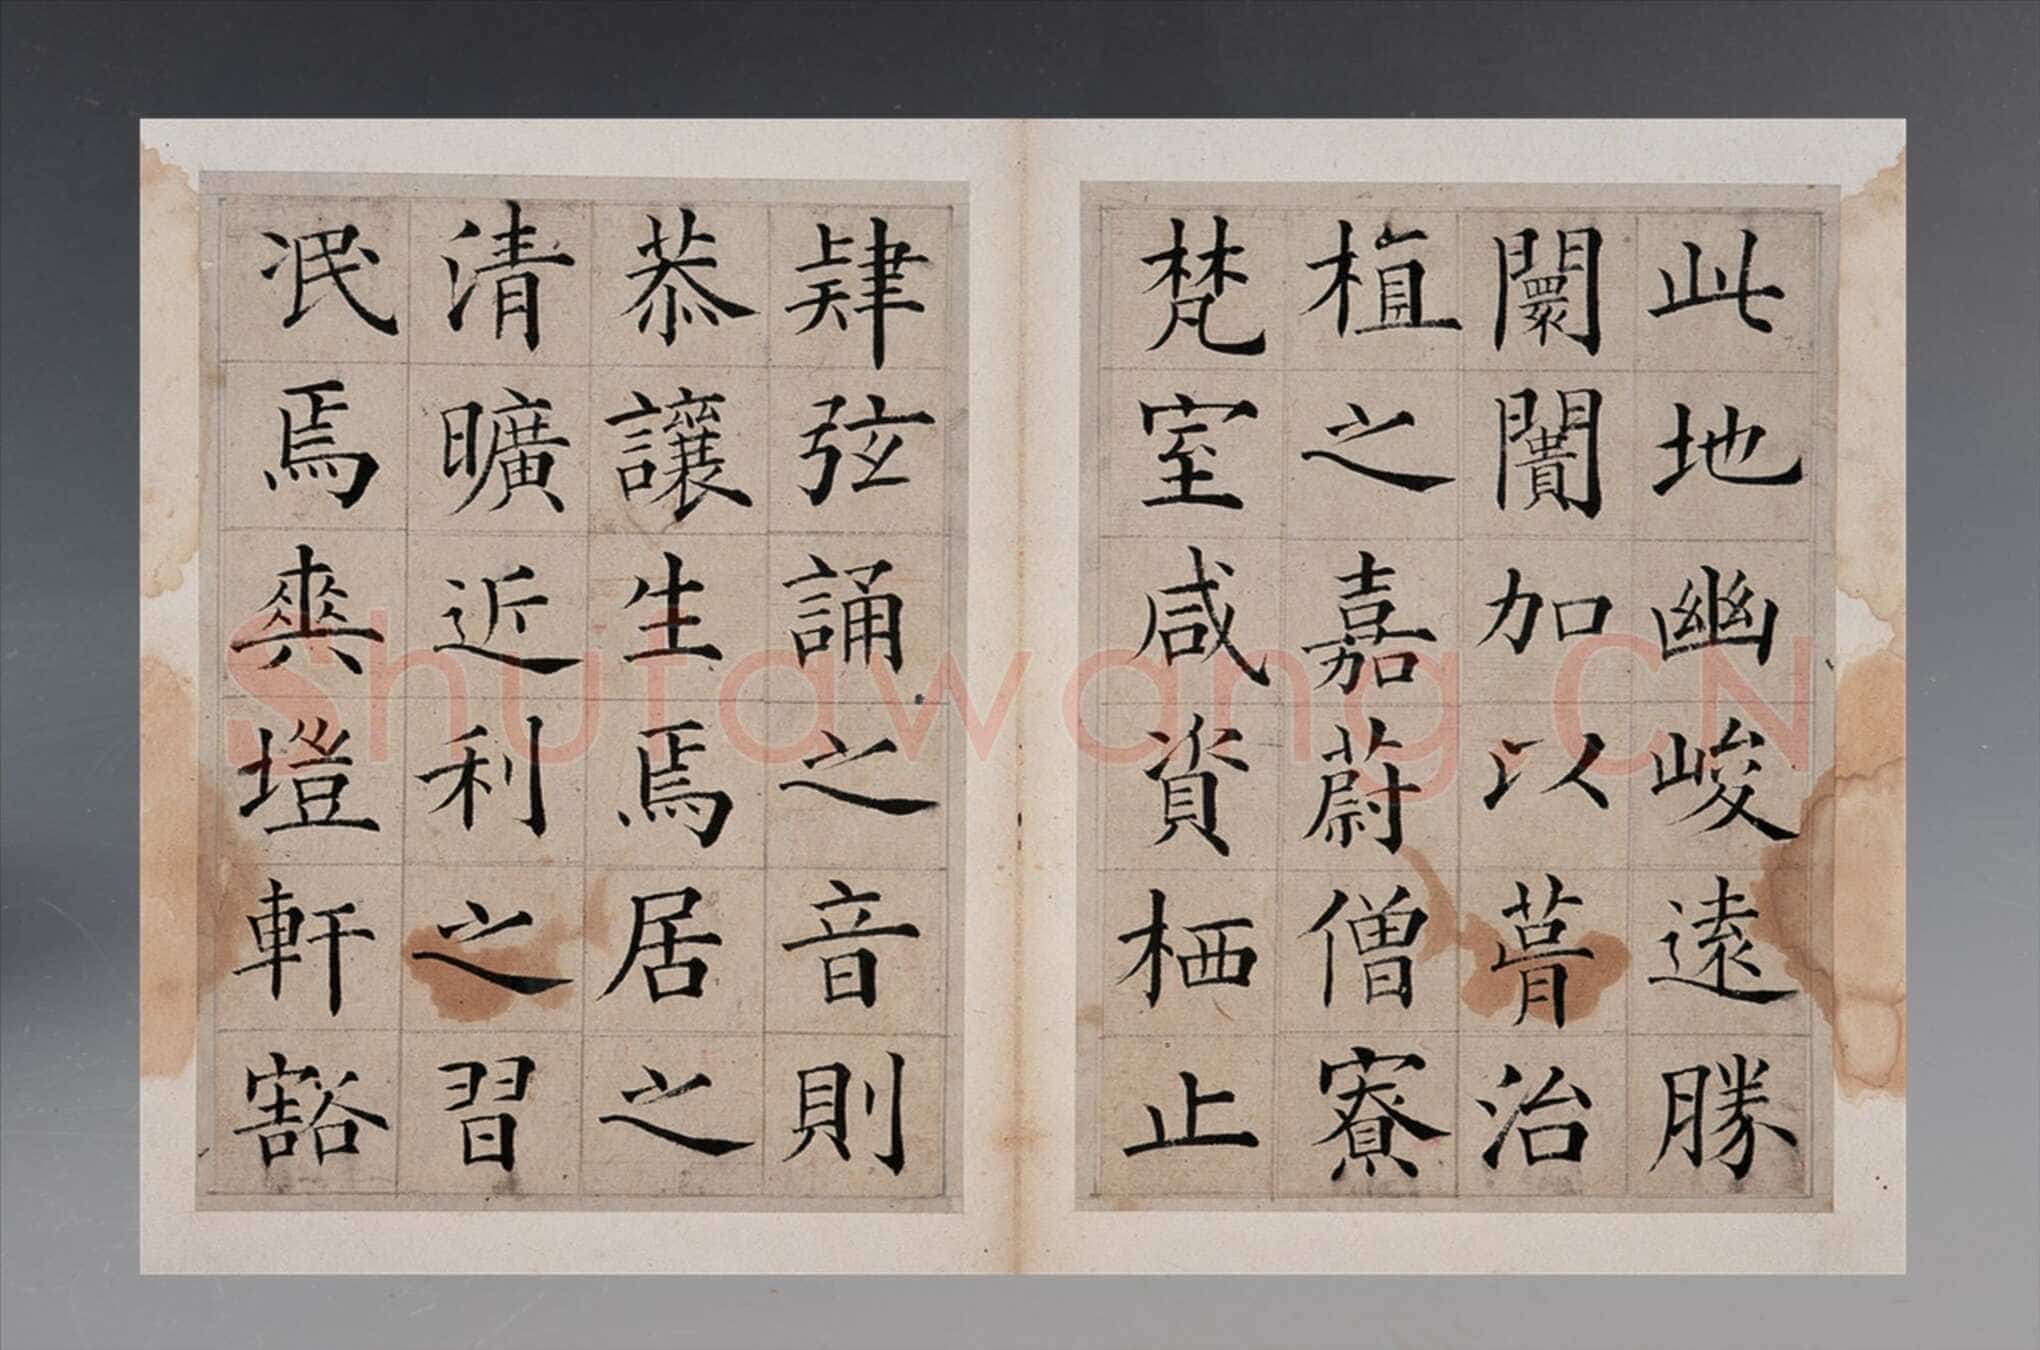 此地幽峻遠勝
闤闠加以葺治
植之嘉蔚僧寮
梵室咸資栖止
肄弦誦之音則
恭讓生焉居之
清曠近利之習
泯焉爽塏軒豁
Shufawang.CN